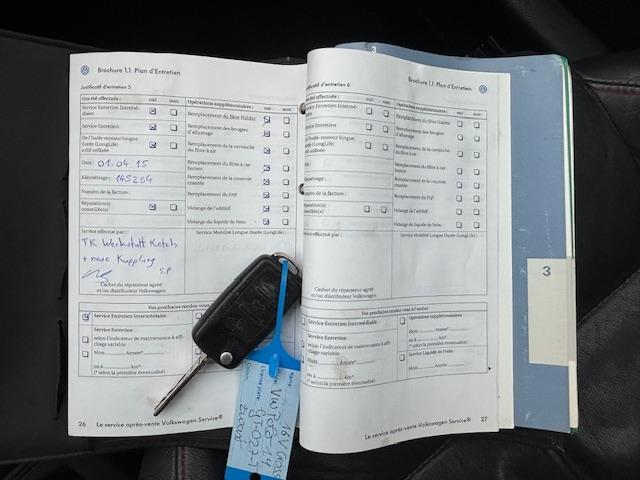 Brochure 1.1 Plan d'Entretien
Justificatif d'entretien 5
Ont été effectués : oui non
Service Entretien Intermédiaire
Service Entretien
De l'huile-moteur longue
durée (LongLife)
a été utilisée
Date : 01.04.15
Kilométrage : 145254
Numéro de la facture :
Réparation(s)
conseillée(s)
Opérations supplémentaires : oui non
Remplacement du filtre Haldex
Remplacement des bougies
d'allumage
Remplacement de la cartouche
du filtre à air
Remplacement du filtre à carburant
Remplacement de la courroie
crantée
Remplacement du FAP
Vidange de l'additif
Vidange du liquide de frein
Service effectué par :
TK Werkstatt Ketsch
+ neue Kupplung
S.P
Cachet du réparateur agréé
et/ou distributeur Volkswagen
Service Mobilité Longue Durée (LongLife)
Vos prochains rendez-vous
Service Entretien Intermédiaire
Service Entretien
selon l'indicateur de maintenance à affichage variable
Mois Année*
ou à km*
(* selon la première éventualité)
26 Le service après-vente Volkswagen Service®
Brochure 1.1 Plan d'Entretien
Justificatif d'entretien 6
oui non
Service Entretien Intermédiaire
Service Entretien
De l'huile-moteur longue
durée (LongLife)
a été utilisée
Kilométrage :
Numéro de la facture :
Réparation(s)
conseillée(s)
Opérations supplémentaires : oui non
Remplacement du filtre Haldex
Remplacement des bougies
d'allumage
Remplacement de la cartouche
du filtre à air
Remplacement du filtre à carburant
Remplacement de la courroie
crantée
Remplacement du FAP
Vidange de l'additif
Vidange du liquide de frein
Service effectué par :
Service Mobilité Longue Durée (LongLife)
Cachet du réparateur agréé
et/ou distributeur Volkswagen
Vos prochains rendez-vous à l'atelier
Service Entretien Intermédiaire
Service Entretien
selon l'indicateur de maintenance à affichage variable
Mois Année*
ou à km*
(* selon la première éventualité)
Opérations supplémentaires
Mois Année*
ou à km*
(* selon la première éventualité)
Service Liquide de frein
Mois Année*
Le service après-vente Volkswagen Service® 27
3
3